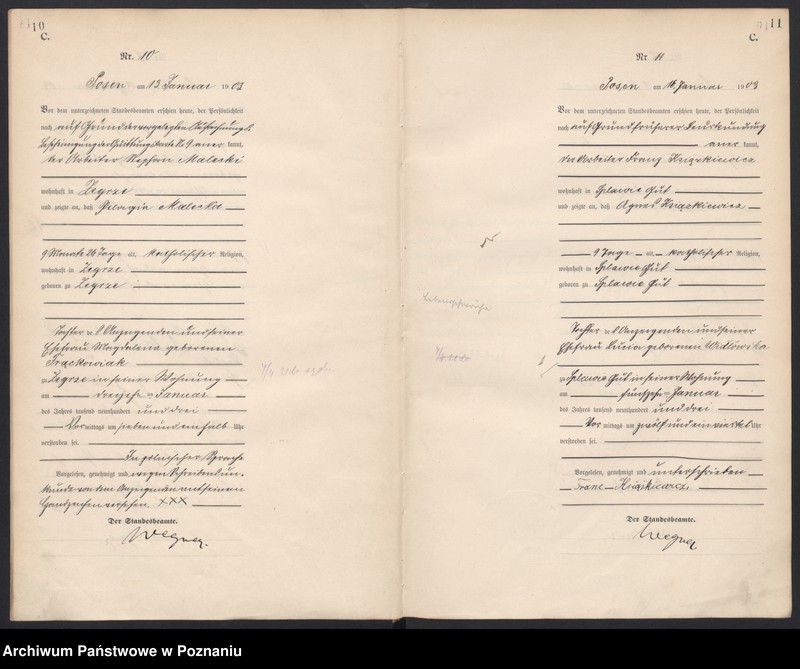 10
C.
Nr. 10
Posen am 13 Januar 1903
Vor dem unterzeichneten Standesbeamten erschien heute, der Persönlichkeit
nach auf Grund der vorgelegten
Bescheinigung Nr. 9 aner kannt,
der Arbeiter Stephan Malecki
wohnhaft in Zegrze
und zeigte an, daß Pelagia Malecka
9 Monate 26 Tage alt, katholischer Religion,
wohnhaft in Zegrze
geboren zu Zegrze
Tochter des Anzeigenden und seiner
Ehefrau Magdalena geborenen
Frąckowiak
zu Zegrze in seiner Wohnung
am dreizehnten Januar
des Jahres tausend neunhundert und drei
Vormittags um sieben und ein halb Uhr
verstorben sei.
In polnischer Sprache
Vorgelesen, genehmigt und wegen Schreibensun-
kunde von dem Anzeigenden mit seinem
Handzeichen versehen. XXX
Der Standesbeamte.
Wegner.
11
C.
Nr. 11
Posen am 16 Januar 1903
Vor dem unterzeichneten Standesbeamten erschien heute, der Persönlichkeit
nach auf Grund früherer Beurkundung
aner kannt,
der Arbeiter Franz Książkiewicz
wohnhaft in Splawie Gut
und zeigte an, daß Agnes Książkiewicz
9 Tage alt, katholischer Religion,
wohnhaft in Splawie Gut
geboren zu Splawie Gut
Tochter des Anzeigenden und seiner
Ehefrau Lucia geborenen Widlowska
zu Splawie Gut in seiner Wohnung
am fünfzehnten Januar
des Jahres tausend neunhundert und drei
Vor mittags um zwölf und ein viertel Uhr
verstorben sei.
Vorgelesen, genehmigt und unterschrieben
Franc Książkiewicz.
Der Standesbeamte.
Wegner
Lebensschwäche
Archiwum Państwowe w Poznaniu